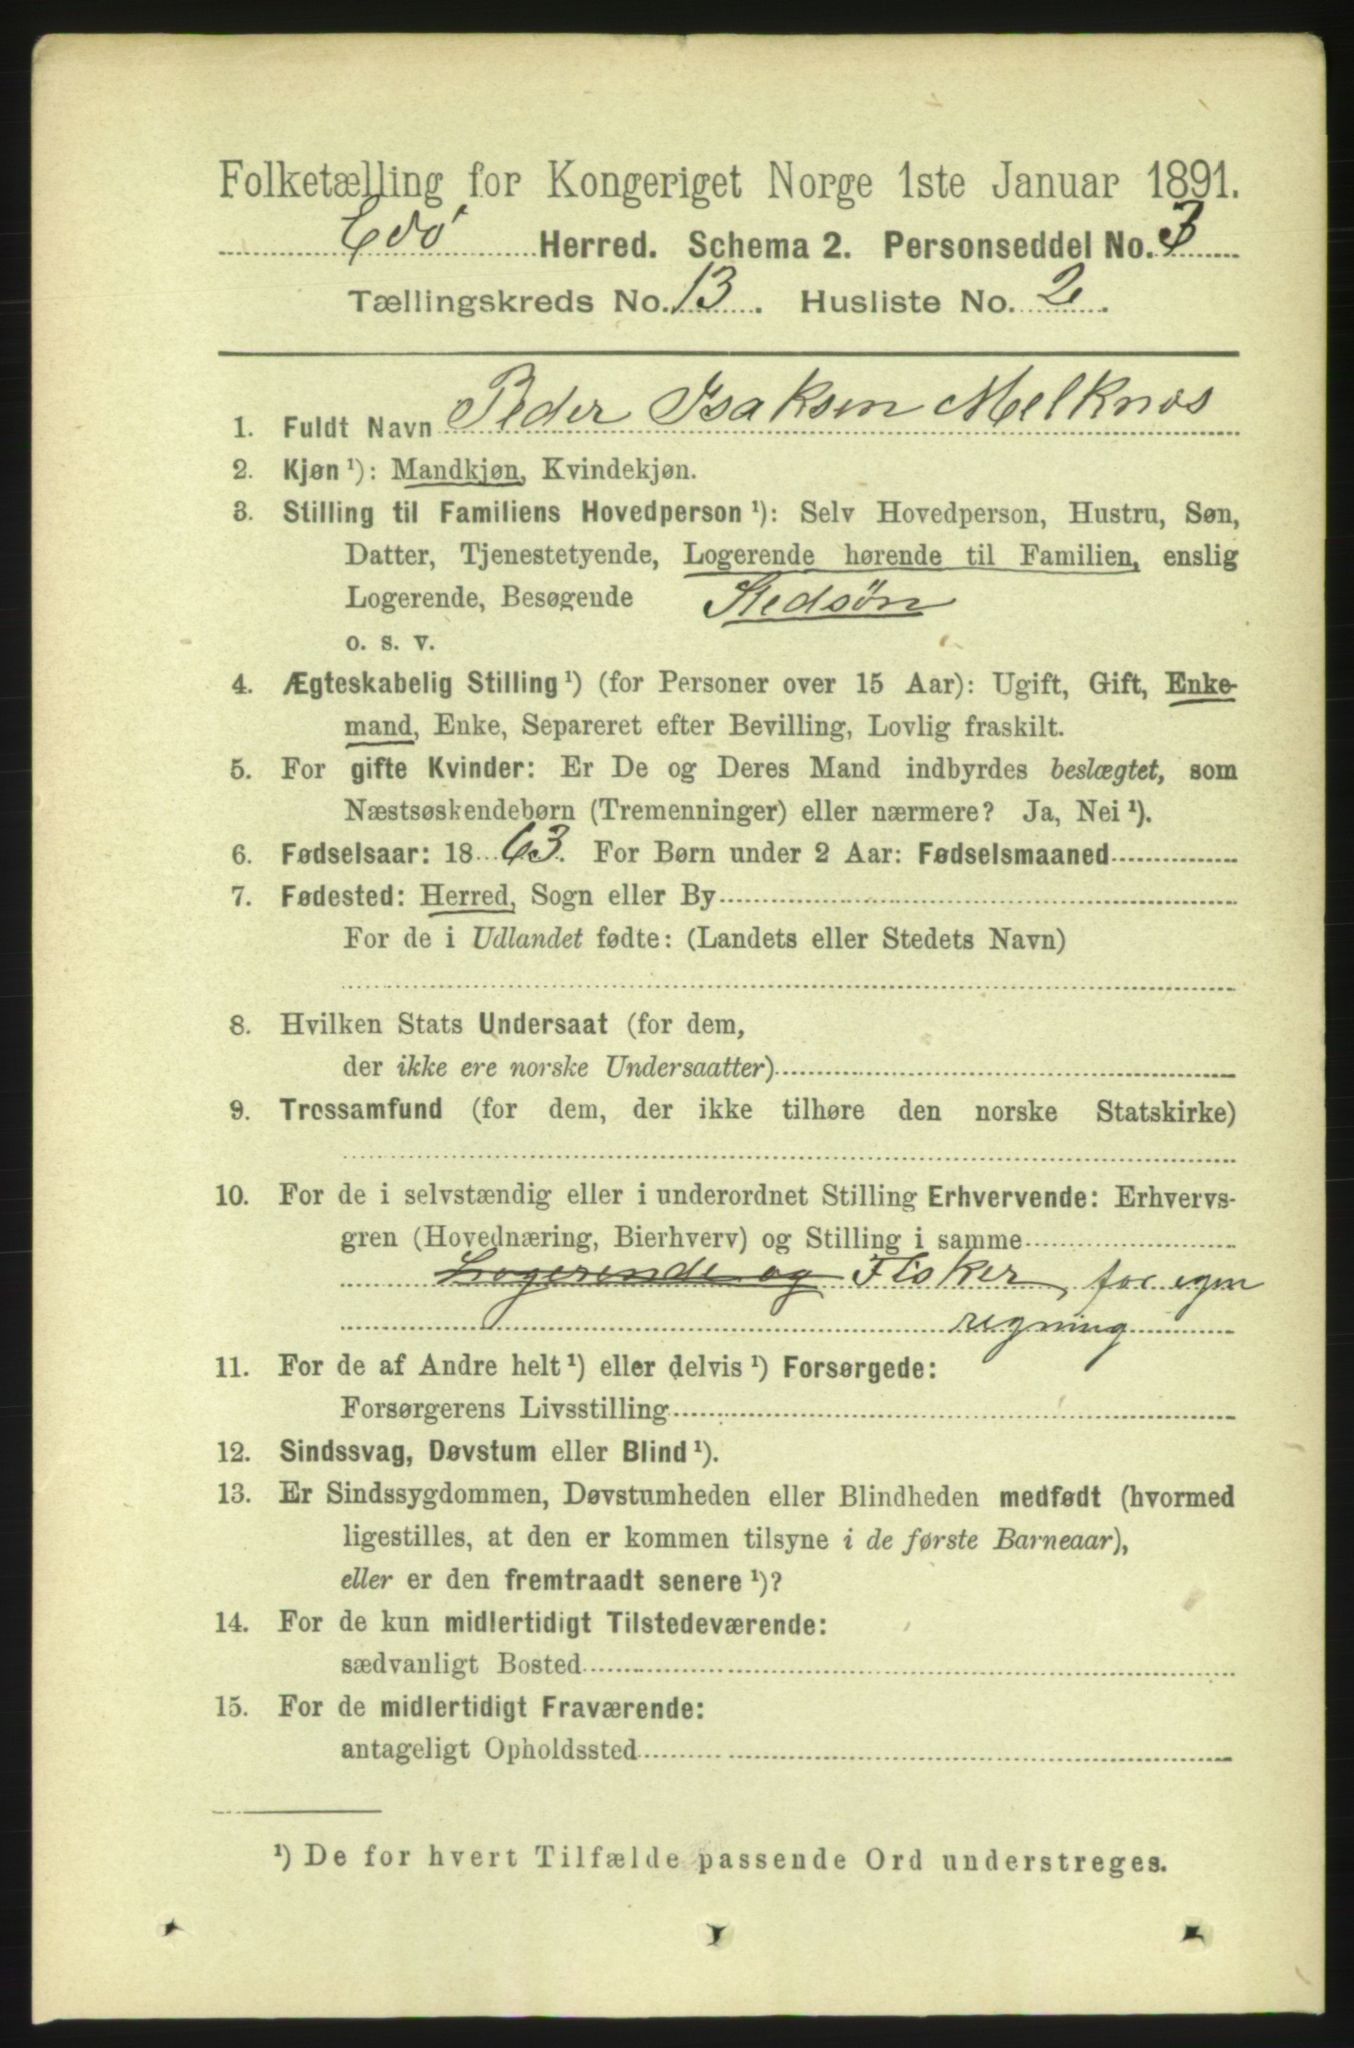 Folketælling for Kongeriget Norge 1ste Januar 1891.
Edø Herred. Schema 2. Personseddel No. 3
Tællingskreds No. 13. Husliste No. 2.
1. Fuldt Navn Peder Isaksen Melknos
2. Kjøn ¹): Mandkjøn, Kvindekjøn.
3. Stilling til Familiens Hovedperson ¹): Selv Hovedperson, Hustru, Søn,
Datter, Tjenestetyende, Logerende hørende til Familien, enslig
Logerende, Besøgende Stedsøn
o. s. v.
4. Ægteskabelig Stilling ¹) (for Personer over 15 Aar): Ugift, Gift, Enke-
mand, Enke, Separeret efter Bevilling, Lovlig fraskilt.
5. For gifte Kvinder: Er De og Deres Mand indbyrdes beslægtet, som
Næstsøskendebørn (Tremenninger) eller nærmere? Ja, Nei ¹).
6. Fødselsaar: 1863. For Børn under 2 Aar: Fødselsmaaned
7. Fødested: Herred, Sogn eller By
For de i Udlandet fødte: (Landets eller Stedets Navn)
8. Hvilken Stats Undersaat (for dem,
der ikke ere norske Undersaatter)
9. Trossamfund (for dem, der ikke tilhøre den norske Statskirke)
10. For de i selvstændig eller i underordnet Stilling Erhvervende: Erhvervs-
gren (Hovednæring, Bierhverv) og Stilling i samme
Logerende og Fisker, for egen
regning
11. For de af Andre helt ¹) eller delvis ¹) Forsørgede:
Forsørgerens Livsstilling
12. Sindssvag, Døvstum eller Blind ¹).
13. Er Sindssygdommen, Døvstumheden eller Blindheden medfødt (hvormed
ligestilles, at den er kommen tilsyne i de første Barneaar),
eller er den fremtraadt senere ¹)?
14. For de kun midlertidigt Tilstedeværende:
sædvanligt Bosted
15. For de midlertidigt Fraværende:
antageligt Opholdssted
¹) De for hvert Tilfælde passende Ord understreges.